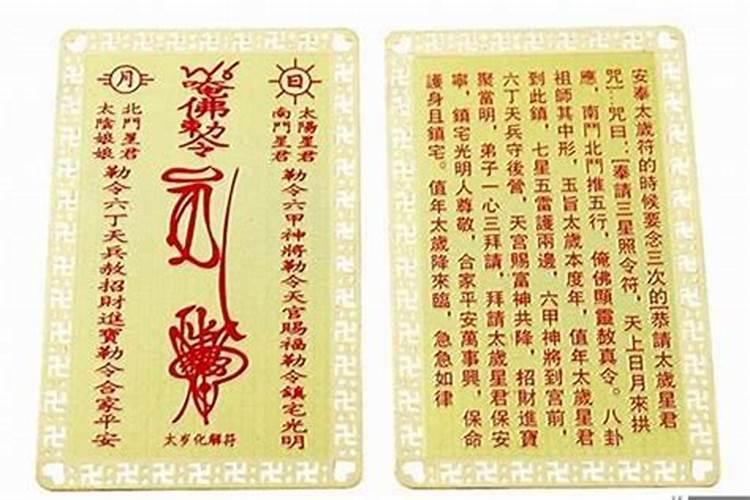 日
太陽星君
南鬥星君
勒令六甲神將勒令天官賜福勒令鎮宅光明
唵佛勅令
太岁化解符
月
北鬥星君
太陰娘娘
勒令六丁天兵赦招財進寶勒令合家平安
安奉太歲符的時候要念三次的[恭請太歲星君
咒]…咒曰：[奉請三星照令符，天上日月來拱
應，南鬥北鬥推五行，俺佛顯靈赦真令。八卦
祖師其中形，玉旨太歲本度年，值年太歲星君
到此鎮，七星五雷護兩邊，六甲神將到宮前，
六丁天兵守後營，天宮賜富神共降，招財進寶
聚當明，弟子一心三拜請，拜請太歲星君保安
寧，鎮宅光明人尊敬，合家平安萬事興，保命
護身且鎮宅。值年太歲降來臨，急急如律